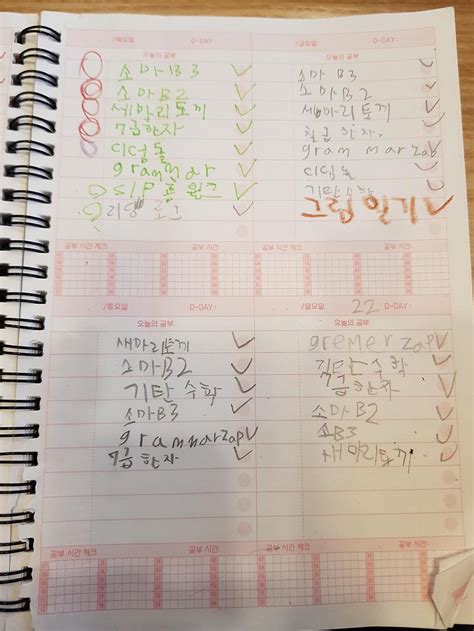 /목요일 D-DAY :
오늘의 공부
소마B3
소마B2
세마리토끼
7급한자
디딤돌
grammar
SIP 폼 원그
리딩 로그
공부 시간 체크
/금요일 D-DAY :
오늘의 공부
소마 B3
소마B2
세마리토끼
칠급 한자.
grammarzap
디딤돌
기탄수학
그림일기
공부 시간 체크
/토요일 D-DAY :
오늘의 공부
새마리토끼
소마B2
기탄 수학
소마B3
grammarzap
7급한자
공부 시간 체크
/일요일 22 D-DAY :
오늘의 공부
gremerzap
기탄수학
7급한자
소마B2
소B3
새마리토끼
공부 시간 체크